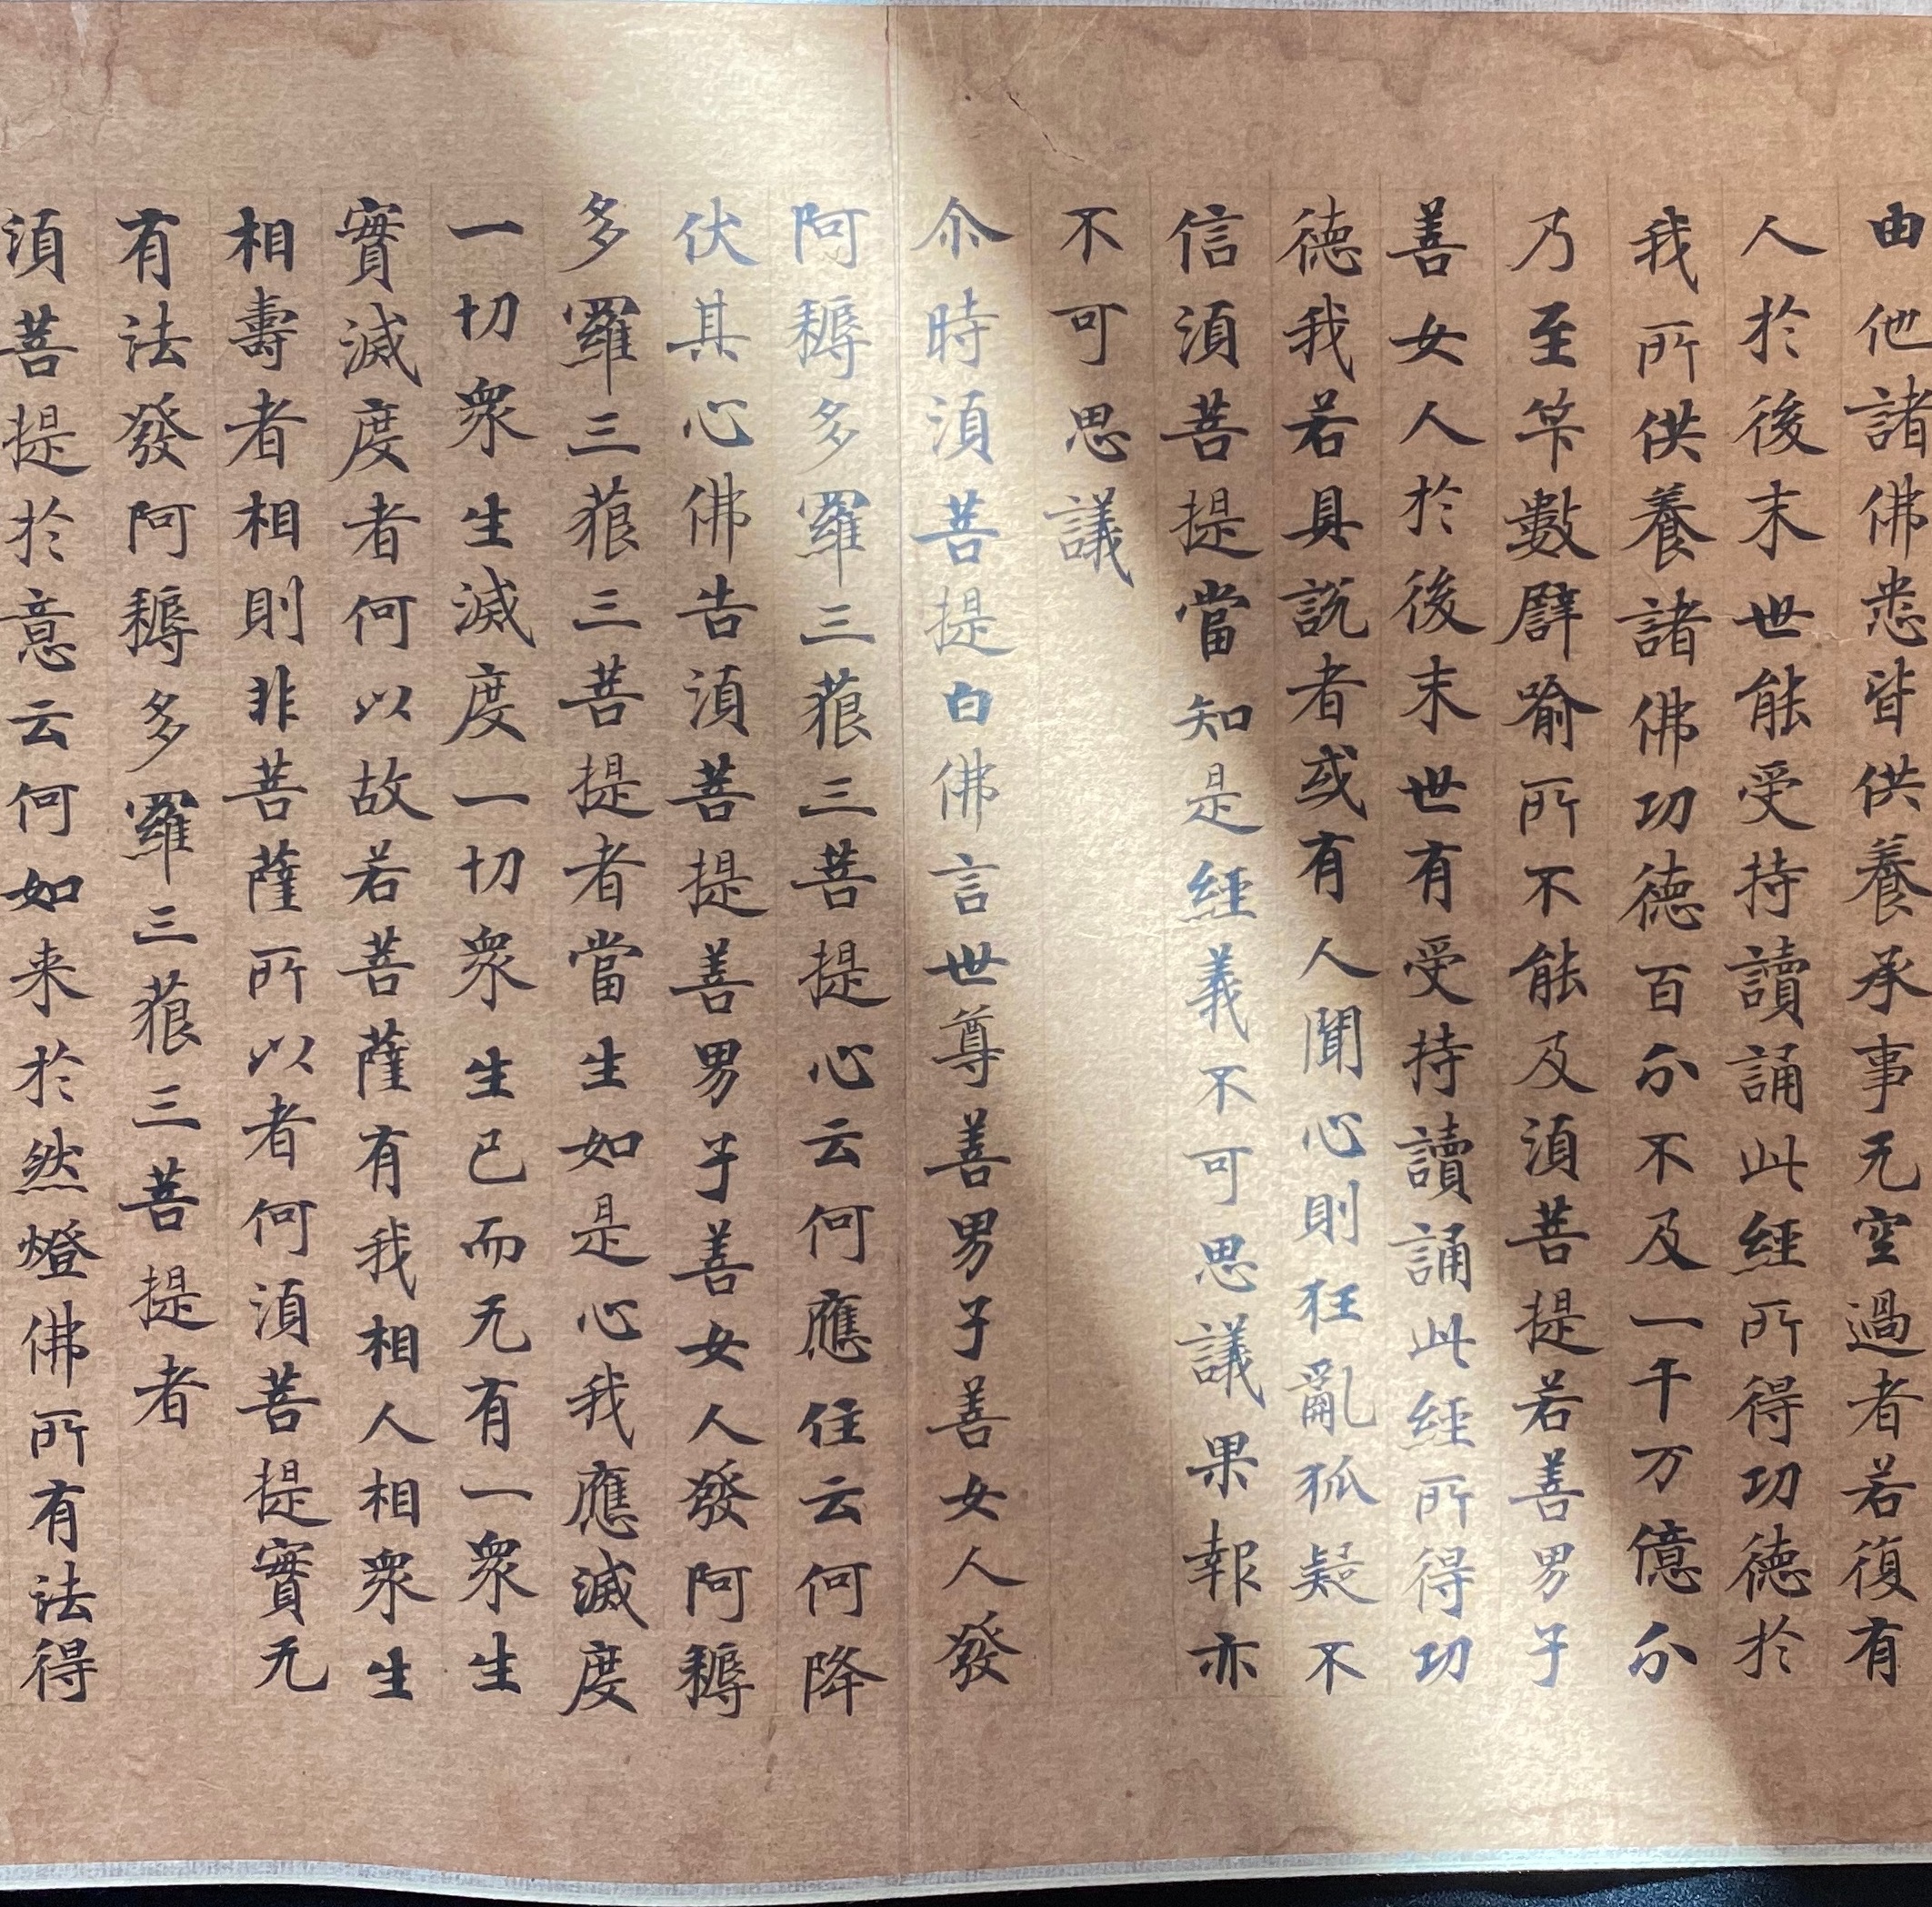 由他諸佛悉皆供養承事无空過者若復有
人於後末世能受持讀誦此經所得功德於
我所供養諸佛功德百分不及一千万億分
乃至笇數譬喻所不能及須菩提若善男子
善女人於後末世有受持讀誦此經所得功
德我若具說者或有人聞心則狂亂狐疑不
信須菩提當知是經義不可思議果報亦
不可思議
尒時須菩提白佛言世尊善男子善女人發
阿耨多羅三藐三菩提心云何應住云何降
伏其心佛告須菩提善男子善女人發阿耨
多羅三藐三菩提者當生如是心我應滅度
一切衆生滅度一切衆生已而无有一衆生
實滅度者何以故若菩薩有我相人相衆生
相壽者相則非菩薩所以者何須菩提實无
有法發阿耨多羅三藐三菩提者
須菩提於意云何如来於然燈佛所有法得